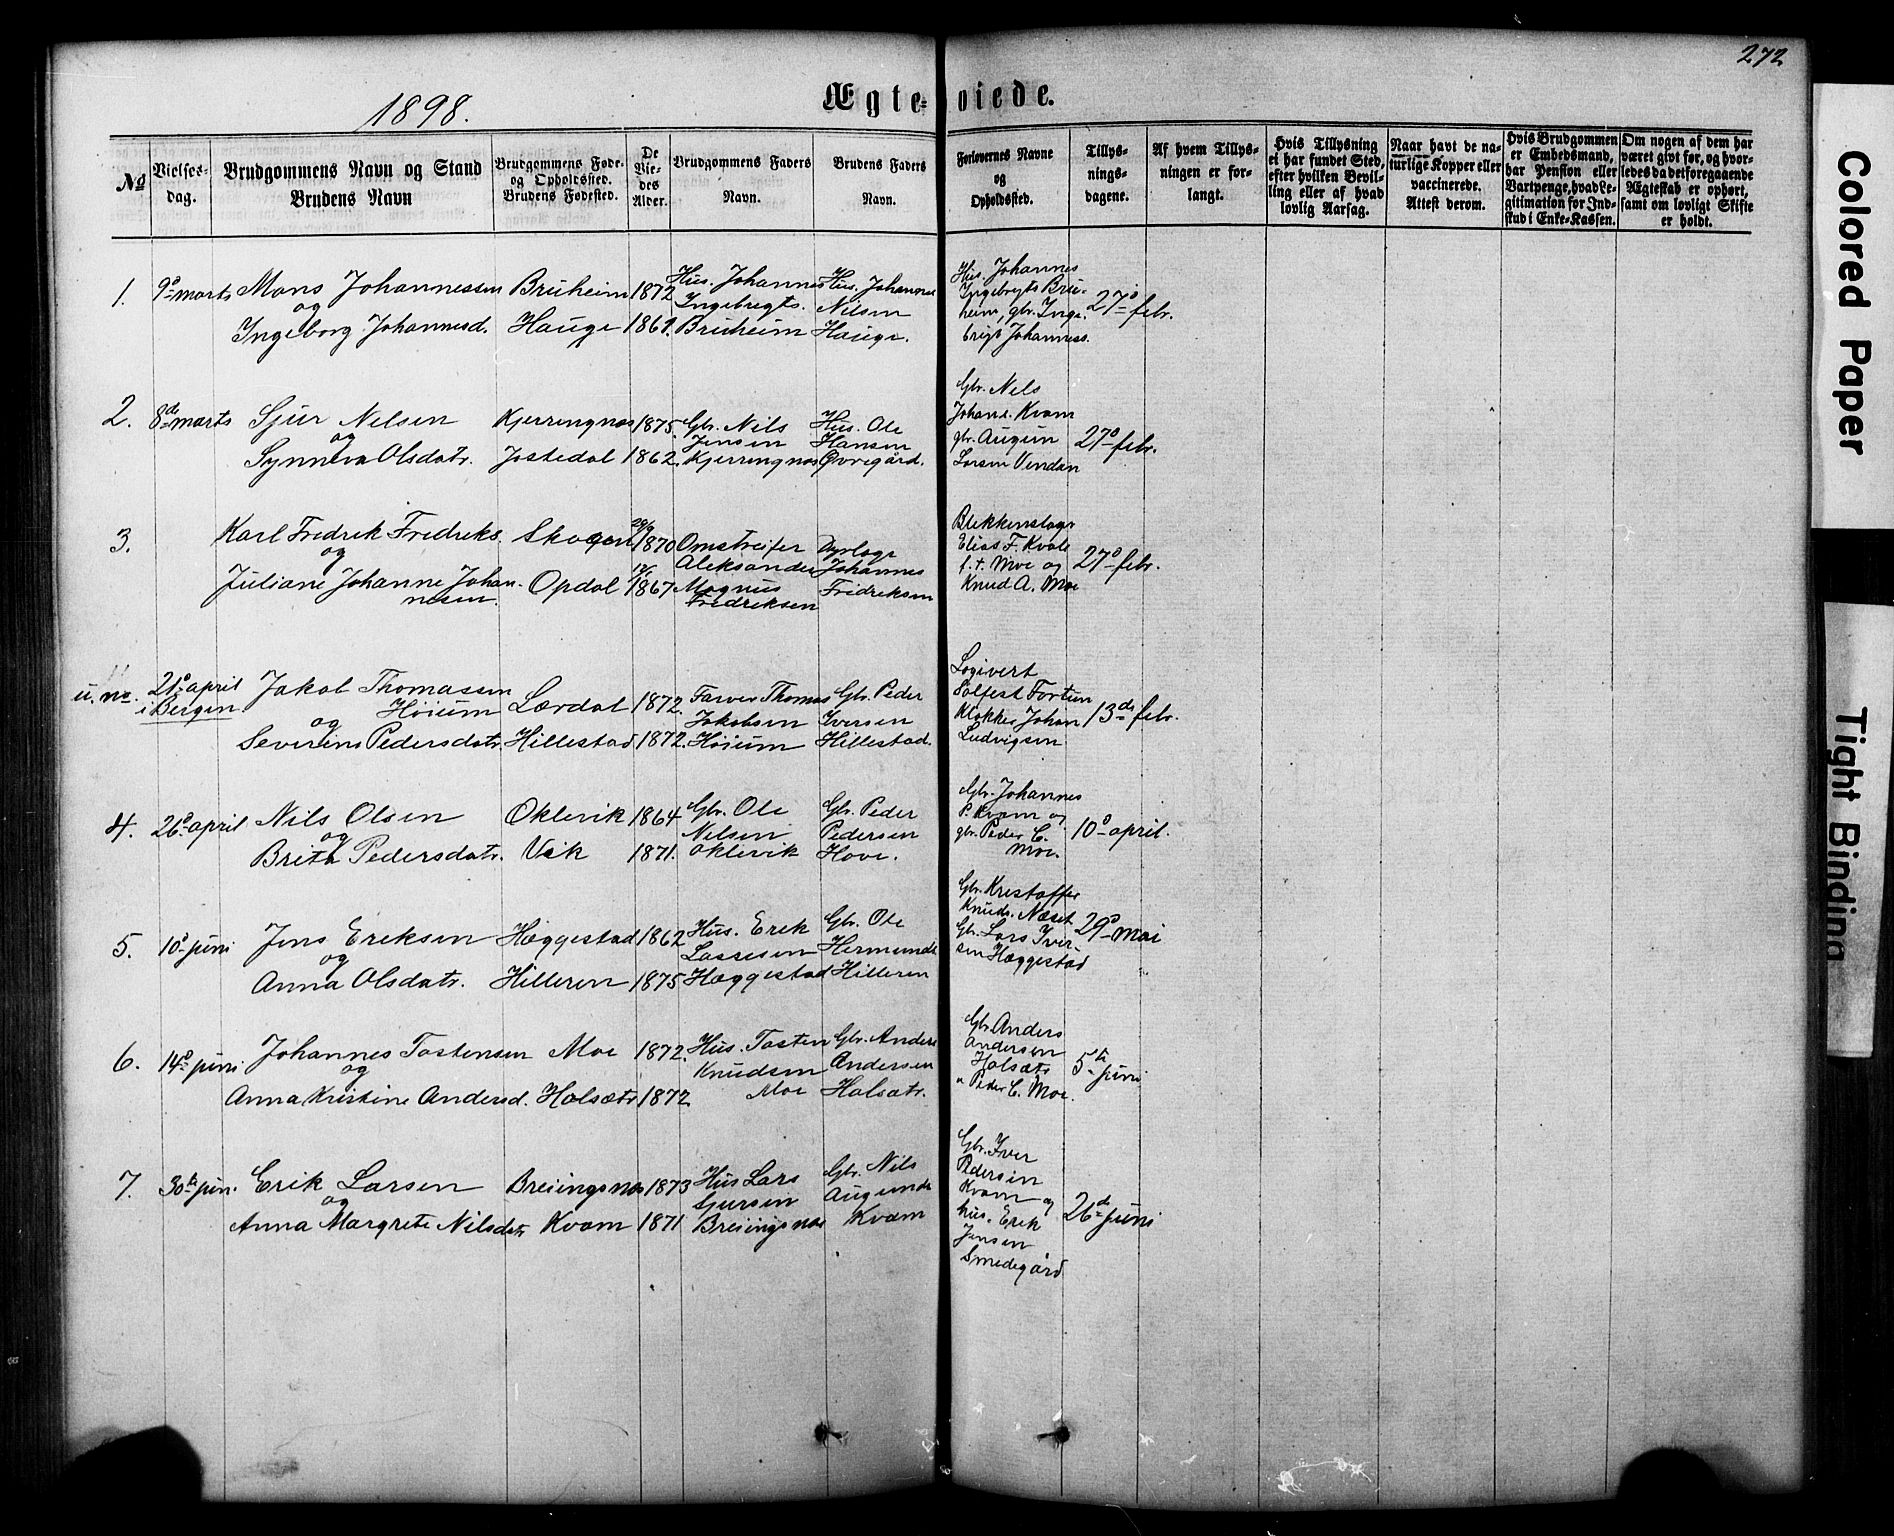 272
1898.
Ægteviede.
No
Vielses-dag.
Brudgommens Navn og Stand
Brudens Navn
Brudgommens Føde- og Opholdssted.
Brudens Fødested.
De Viedes Alder.
Brudgommens Faders Navn.
Brudens Faders Navn.
Forlovernes Navne og Opholdssted.
Tillysningsdagene.
Af hvem Tillysningen er forlangt.
Hvis Tillysning ei har fundet Sted, efter hvilken Bevilling eller af hvad lovlig Aarsag.
Naar havt de naturlige Kopper eller vaccinerede. Attest derom.
Hvis Brudgommen er Embedsmand, har Pension eller Vartpenge, hvad Legitimation for Indskud i Enke-Kassen.
Om nogen af dem har været givt før, og hvorledes da det foregaaende Ægteskab er ophørt, samt om lovligt Skifte er holdt.
1. 9de marts Mons Johannessen Bruheim 1872 Hus. Johannes Hus. Johannes
og Ingebregts. Nilsen
Ingeborg Johannesd. Hauge 1869. Bruheim Hauge.
Hus. Johannes
Ingebregts Bru-
heim, gbr. Inge- 27de febr.
brigt Johanness.
2. 8de marts Sjur Nelsen Kjerringnæs 1875. Gbr. Nils Hus. Ole
og Jensen Hansen
Synneva Olsdatr. Jostedal 1862. Kjerringnæs Øvregård.
Gbr. Nels
Johan. Kvam
gbr. Augun 27de febr.
Larsen Vendan
3. Karl Fredrik Fredriks. Skogen 1870 Omstreifer
og Aleksander Johannes
Juliane Johanne Johan- Opdal 1867 Magnus Fridriksen
nesen. Fredriksen
Blekkenslagr
Elias F. Kvale
f. t. Moe og 27de febr.
Knud A. Moe
u. no. 21de april Jakob Thomassen Lærdal 1872. Farver Thomas Gbr. Peder
i Bergen Høium Jakobsen Iversen
og
Severine Pedersdatr. Hillestad 1872. Høium Hillestad.
Logivert
Solfest Fortun
Klokker Johan 13de febr.
Ludvigsen
4. 26de april Nils Olsen Oklevik 1864 Gbr. Ole Gbr. Peder
og Nelsen Pedersen
Brita Pedersdatr. Vik 1871. Oklevik Hove.
Gbr. Johannes
P. Kvam og
gbr. Peder C. 10de april.
Moe.
5. 10de juni Jens Eriksen Hæggestad 1862 Hus. Erik Gbr. Ole
og Lassesen Hermunds
Anna Olsdatr. Hilleren 1875 Hæggestad Hilleren
Gbr. Kristoffer
Knuds. Næset 29de mai
Gbr. Lars Iver-
sen Hæggestad
6. 14de juni Johannes Tostensen Moe 1872. Hus. Tosten Gbr. Anders
og Knudsen Andersen
Anna Kristine Andersd. Holsætr 1872 Moe Holsætr.
Gbr. Anders
Andersen
Holsætr 5te juni
Peder C. Moe.
7. 30te jun. Erik Larsen Breiingsnæs 1873 Hus Lars Gbr. Nils
og Sjursen Augunds
Anna Margrete Nilsdtr Kvam 1871 Breiingsnæs Kvam
Gbr. Iver
Pedersen
Kvam og
hus. Erik 26de juni
Jensen
Smedegård
Colored Paper
Tight Binding